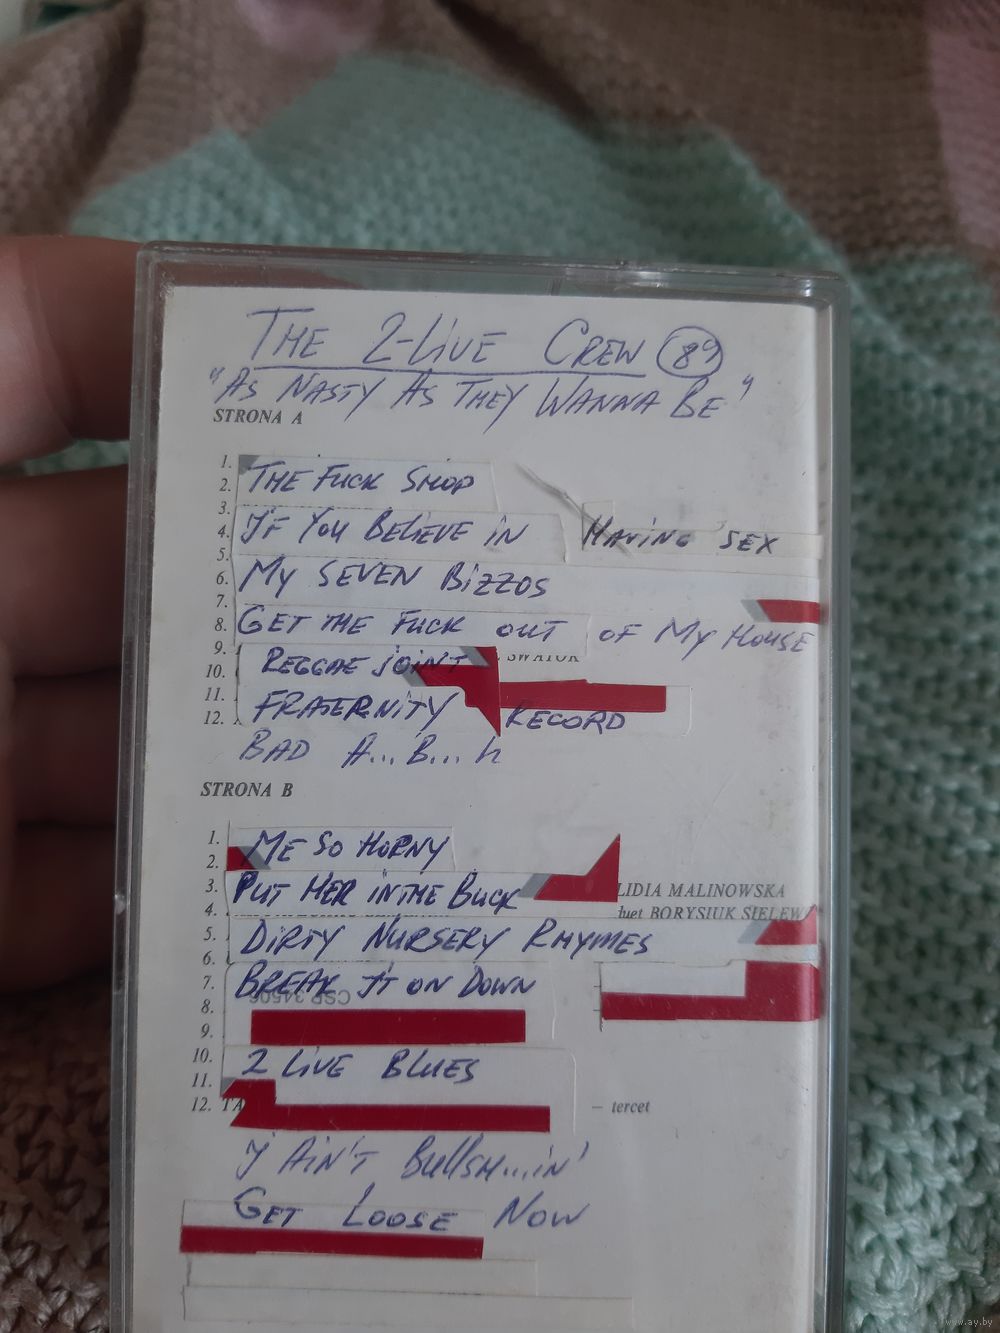 THE 2-LiVE CREW 89
"AS NASTY AS THEY WANNA BE"
STRONA A
1.
2. THE FUCK SHOP
3.
4. IF YOU BELIEVE iN HAViNG SEX
5.
6. MY SEVEN BiZZOS
7.
8. GET THE FUCK OUT OF MY HOUSE
9. SWATOR
10. REGGAE JOiNT
11.
12. FRATERNiTY RECORD
BAD A... B... h
STRONA B
1. ME SO HORNY
2.
3. PUT HER iN THE BUCK LIDIA MALINOWSKA
4. duet BORYSIUK SIELEW
5. DiRTY NURSERY RHYMES
6.
7. BREAK IT ON DOWN
CSP 34506
8.
9.
10. 2 LiVE BLUES
11.
12. TA – tercet
I AiN'T BullSH...iN'
GET LOOSE NOW
www.ay.by